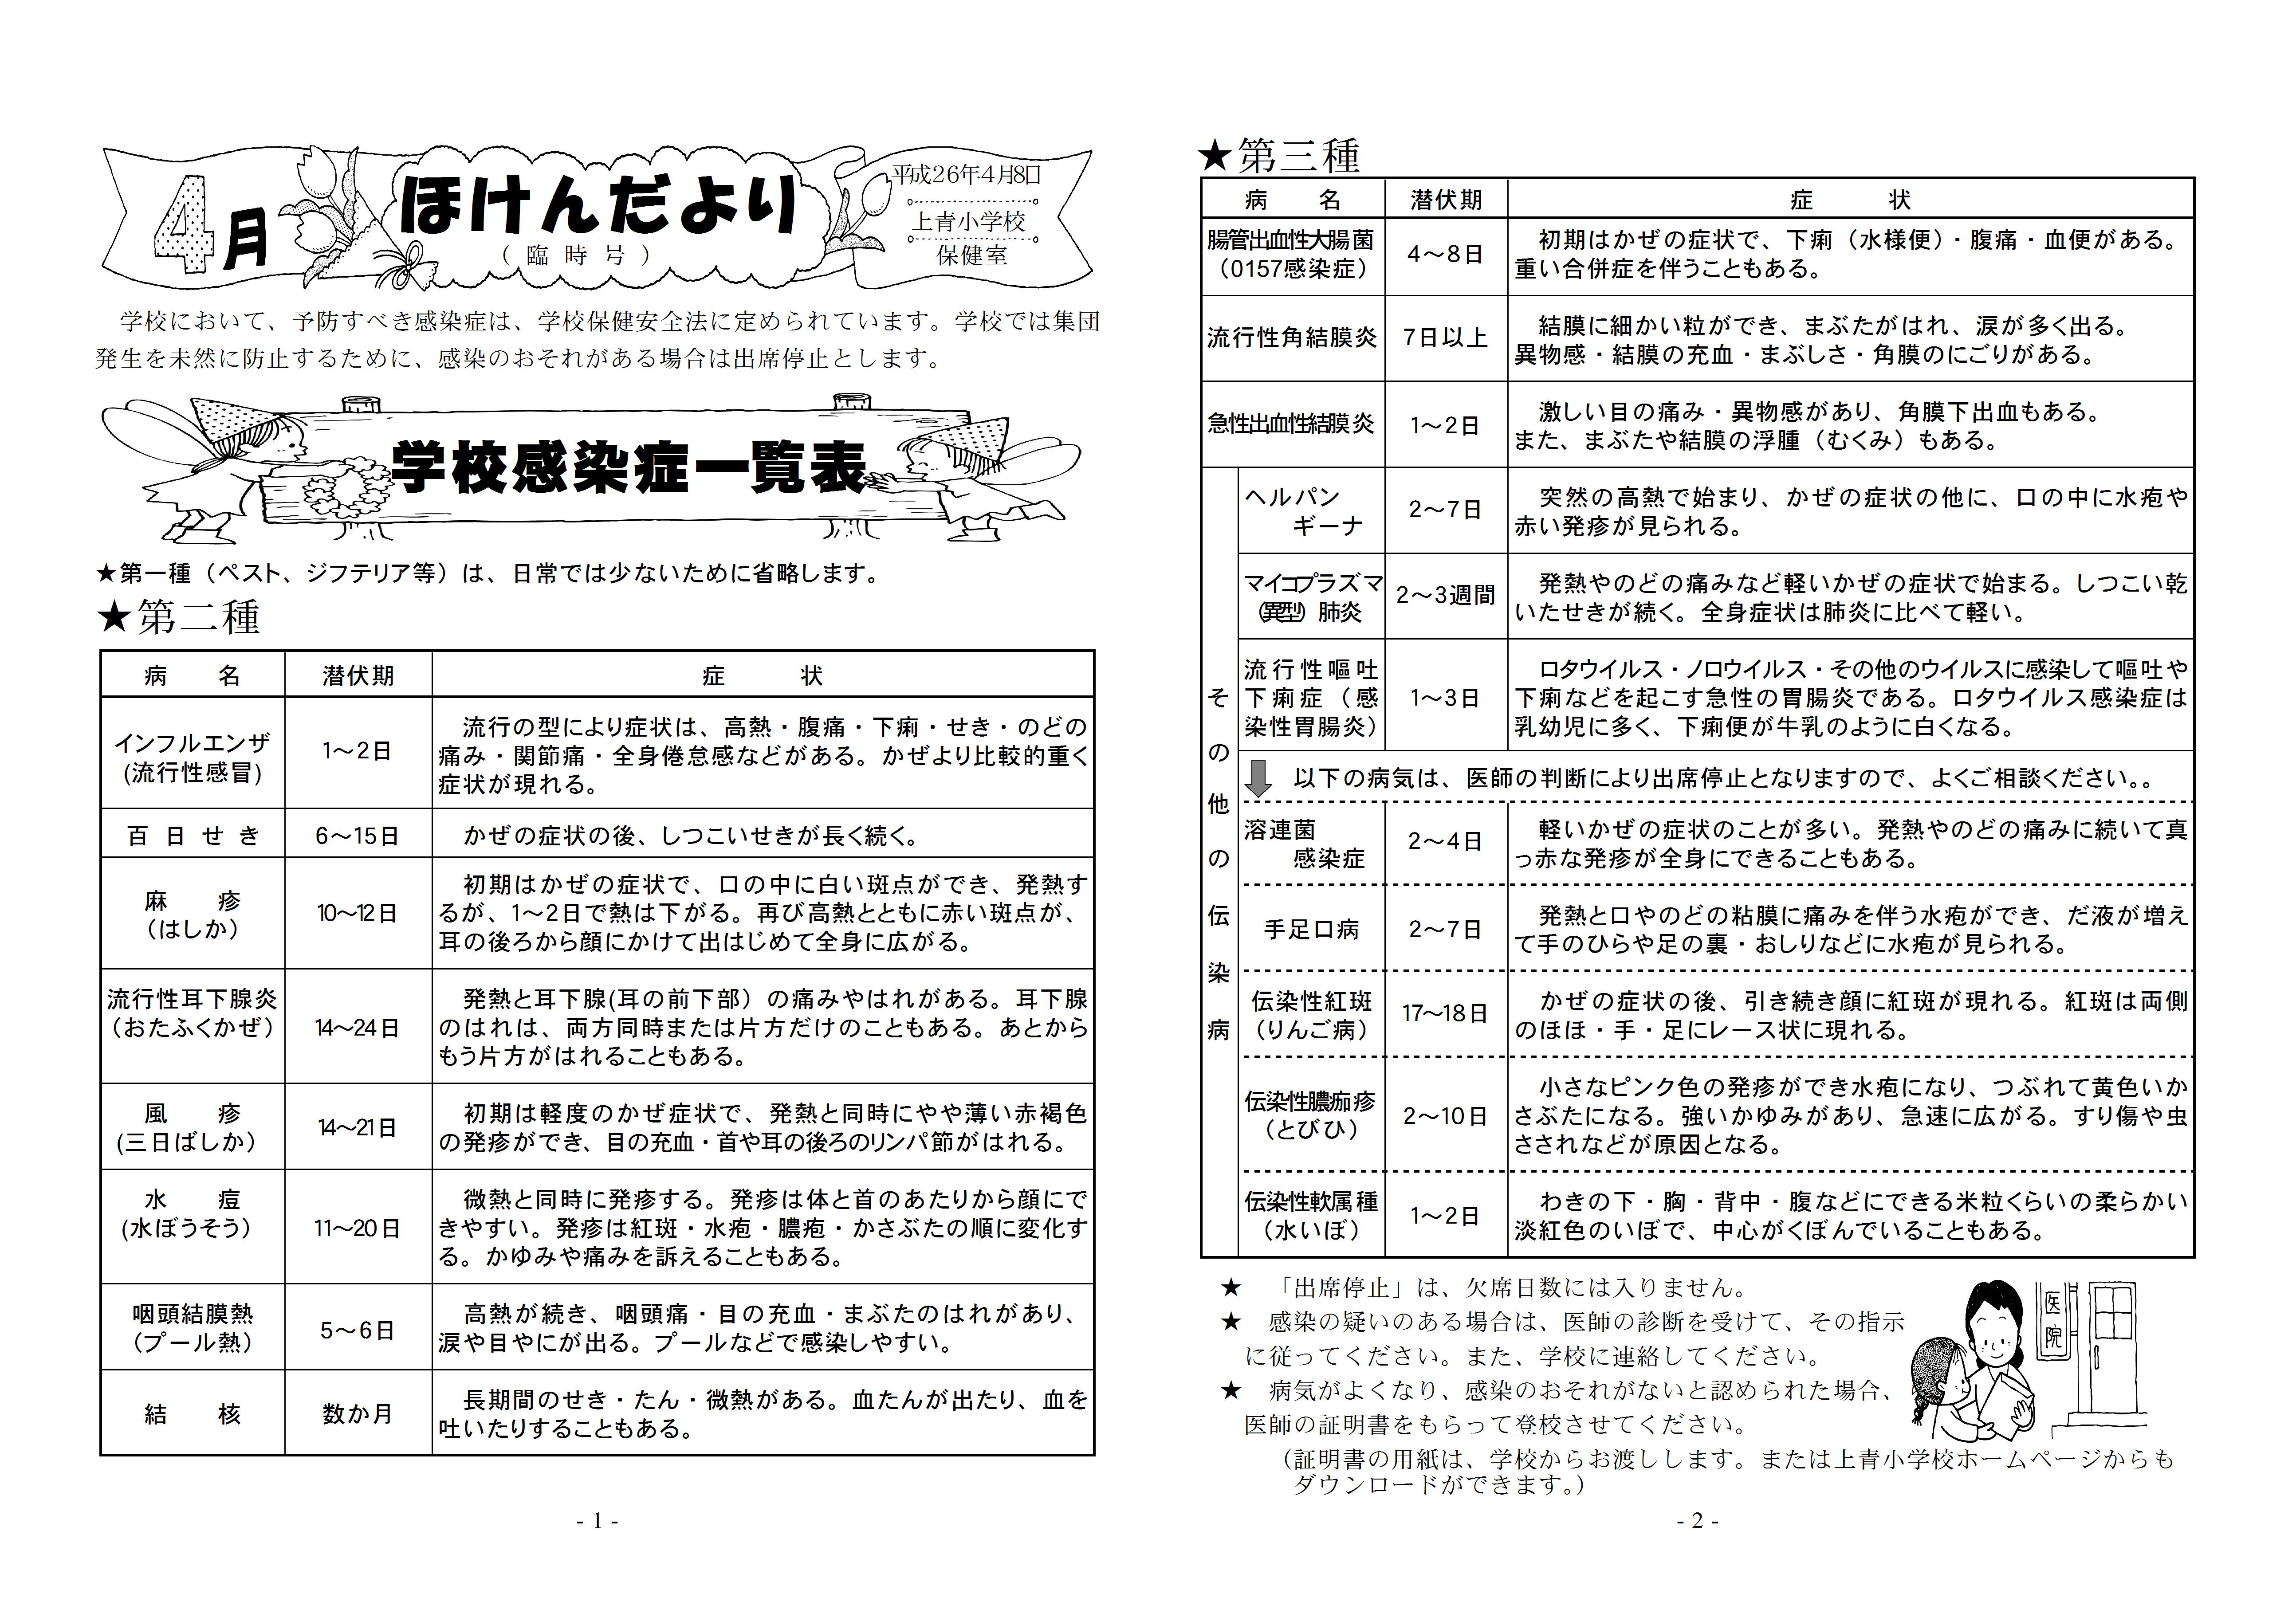 4月
ほけんだより
（臨時号）
平成26年4月8日
上青小学校
保健室
学校において、予防すべき感染症は、学校保健安全法に定められています。学校では集団
発生を未然に防止するために、感染のおそれがある場合は出席停止とします。
学校感染症一覧表
★第一種（ペスト、ジフテリア等）は、日常では少ないために省略します。
★第二種
病　名　潜伏期　症　状
インフルエンザ
(流行性感冒)
1～2日
流行の型により症状は、高熱・腹痛・下痢・せき・のどの
痛み・関節痛・全身倦怠感などがある。かぜより比較的重く
症状が現れる。
百日せき
6～15日
かぜの症状の後、しつこいせきが長く続く。
麻　疹
（はしか）
10～12日
初期はかぜの症状で、口の中に白い斑点ができ、発熱す
るが、1～2日で熱は下がる。再び高熱とともに赤い斑点が、
耳の後ろから顔にかけて出はじめて全身に広がる。
流行性耳下腺炎
（おたふくかぜ）
14～24日
発熱と耳下腺(耳の前下部）の痛みやはれがある。耳下腺
のはれは、両方同時または片方だけのこともある。あとから
もう片方がはれることもある。
風　疹
(三日ばしか）
14～21日
初期は軽度のかぜ症状で、発熱と同時にやや薄い赤褐色
の発疹ができ、目の充血・首や耳の後ろのリンパ節がはれる。
水　痘
(水ぼうそう）
11～20日
微熱と同時に発疹する。発疹は体と首のあたりから顔にで
きやすい。発疹は紅斑・水疱・膿疱・かさぶたの順に変化す
る。かゆみや痛みを訴えることもある。
咽頭結膜熱
（プール熱）
5～6日
高熱が続き、咽頭痛・目の充血・まぶたのはれがあり、
涙や目やにが出る。プールなどで感染しやすい。
結　核
数か月
長期間のせき・たん・微熱がある。血たんが出たり、血を
吐いたりすることもある。
- 1 -
★第三種
病　名　潜伏期　症　状
腸管出血性大腸菌
（0157感染症）
4～8日
初期はかぜの症状で、下痢（水様便）・腹痛・血便がある。
重い合併症を伴うこともある。
流行性角結膜炎
7日以上
結膜に細かい粒ができ、まぶたがはれ、涙が多く出る。
異物感・結膜の充血・まぶしさ・角膜のにごりがある。
急性出血性結膜炎
1～2日
激しい目の痛み・異物感があり、角膜下出血もある。
また、まぶたや結膜の浮腫（むくみ）もある。
その他の伝染病
ヘルパン
ギーナ
2～7日
突然の高熱で始まり、かぜの症状の他に、口の中に水疱や
赤い発疹が見られる。
マイコプラズマ
（異型）肺炎
2～3週間
発熱やのどの痛みなど軽いかぜの症状で始まる。しつこい乾
いたせきが続く。全身症状は肺炎に比べて軽い。
流行性嘔吐
下痢症（感
染性胃腸炎）
1～3日
ロタウイルス・ノロウイルス・その他のウイルスに感染して嘔吐や
下痢などを起こす急性の胃腸炎である。ロタウイルス感染症は
乳幼児に多く、下痢便が牛乳のように白くなる。
以下の病気は、医師の判断により出席停止となりますので、よくご相談ください。。
溶連菌
感染症
2～4日
軽いかぜの症状のことが多い。発熱やのどの痛みに続いて真
っ赤な発疹が全身にできることもある。
手足口病
2～7日
発熱と口やのどの粘膜に痛みを伴う水疱ができ、だ液が増え
て手のひらや足の裏・おしりなどに水疱が見られる。
伝染性紅斑
（りんご病）
17～18日
かぜの症状の後、引き続き顔に紅斑が現れる。紅斑は両側
のほほ・手・足にレース状に現れる。
伝染性膿痂疹
（とびひ）
2～10日
小さなピンク色の発疹ができ水疱になり、つぶれて黄色いか
さぶたになる。強いかゆみがあり、急速に広がる。すり傷や虫
さされなどが原因となる。
伝染性軟属種
（水いぼ）
1～2日
わきの下・胸・背中・腹などにできる米粒くらいの柔らかい
淡紅色のいぼで、中心がくぼんでいることもある。
★　「出席停止」は、欠席日数には入りません。
★　感染の疑いのある場合は、医師の診断を受けて、その指示
に従ってください。また、学校に連絡してください。
★　病気がよくなり、感染のおそれがないと認められた場合、
医師の証明書をもらって登校させてください。
（証明書の用紙は、学校からお渡しします。または上青小学校ホームページからも
ダウンロードができます。）
医院
- 2 -